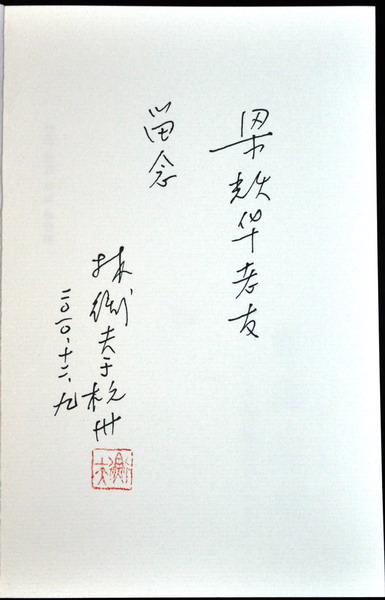 梁华老友
留念
林衡夫于杭州
二〇一〇、十二、九
衡夫